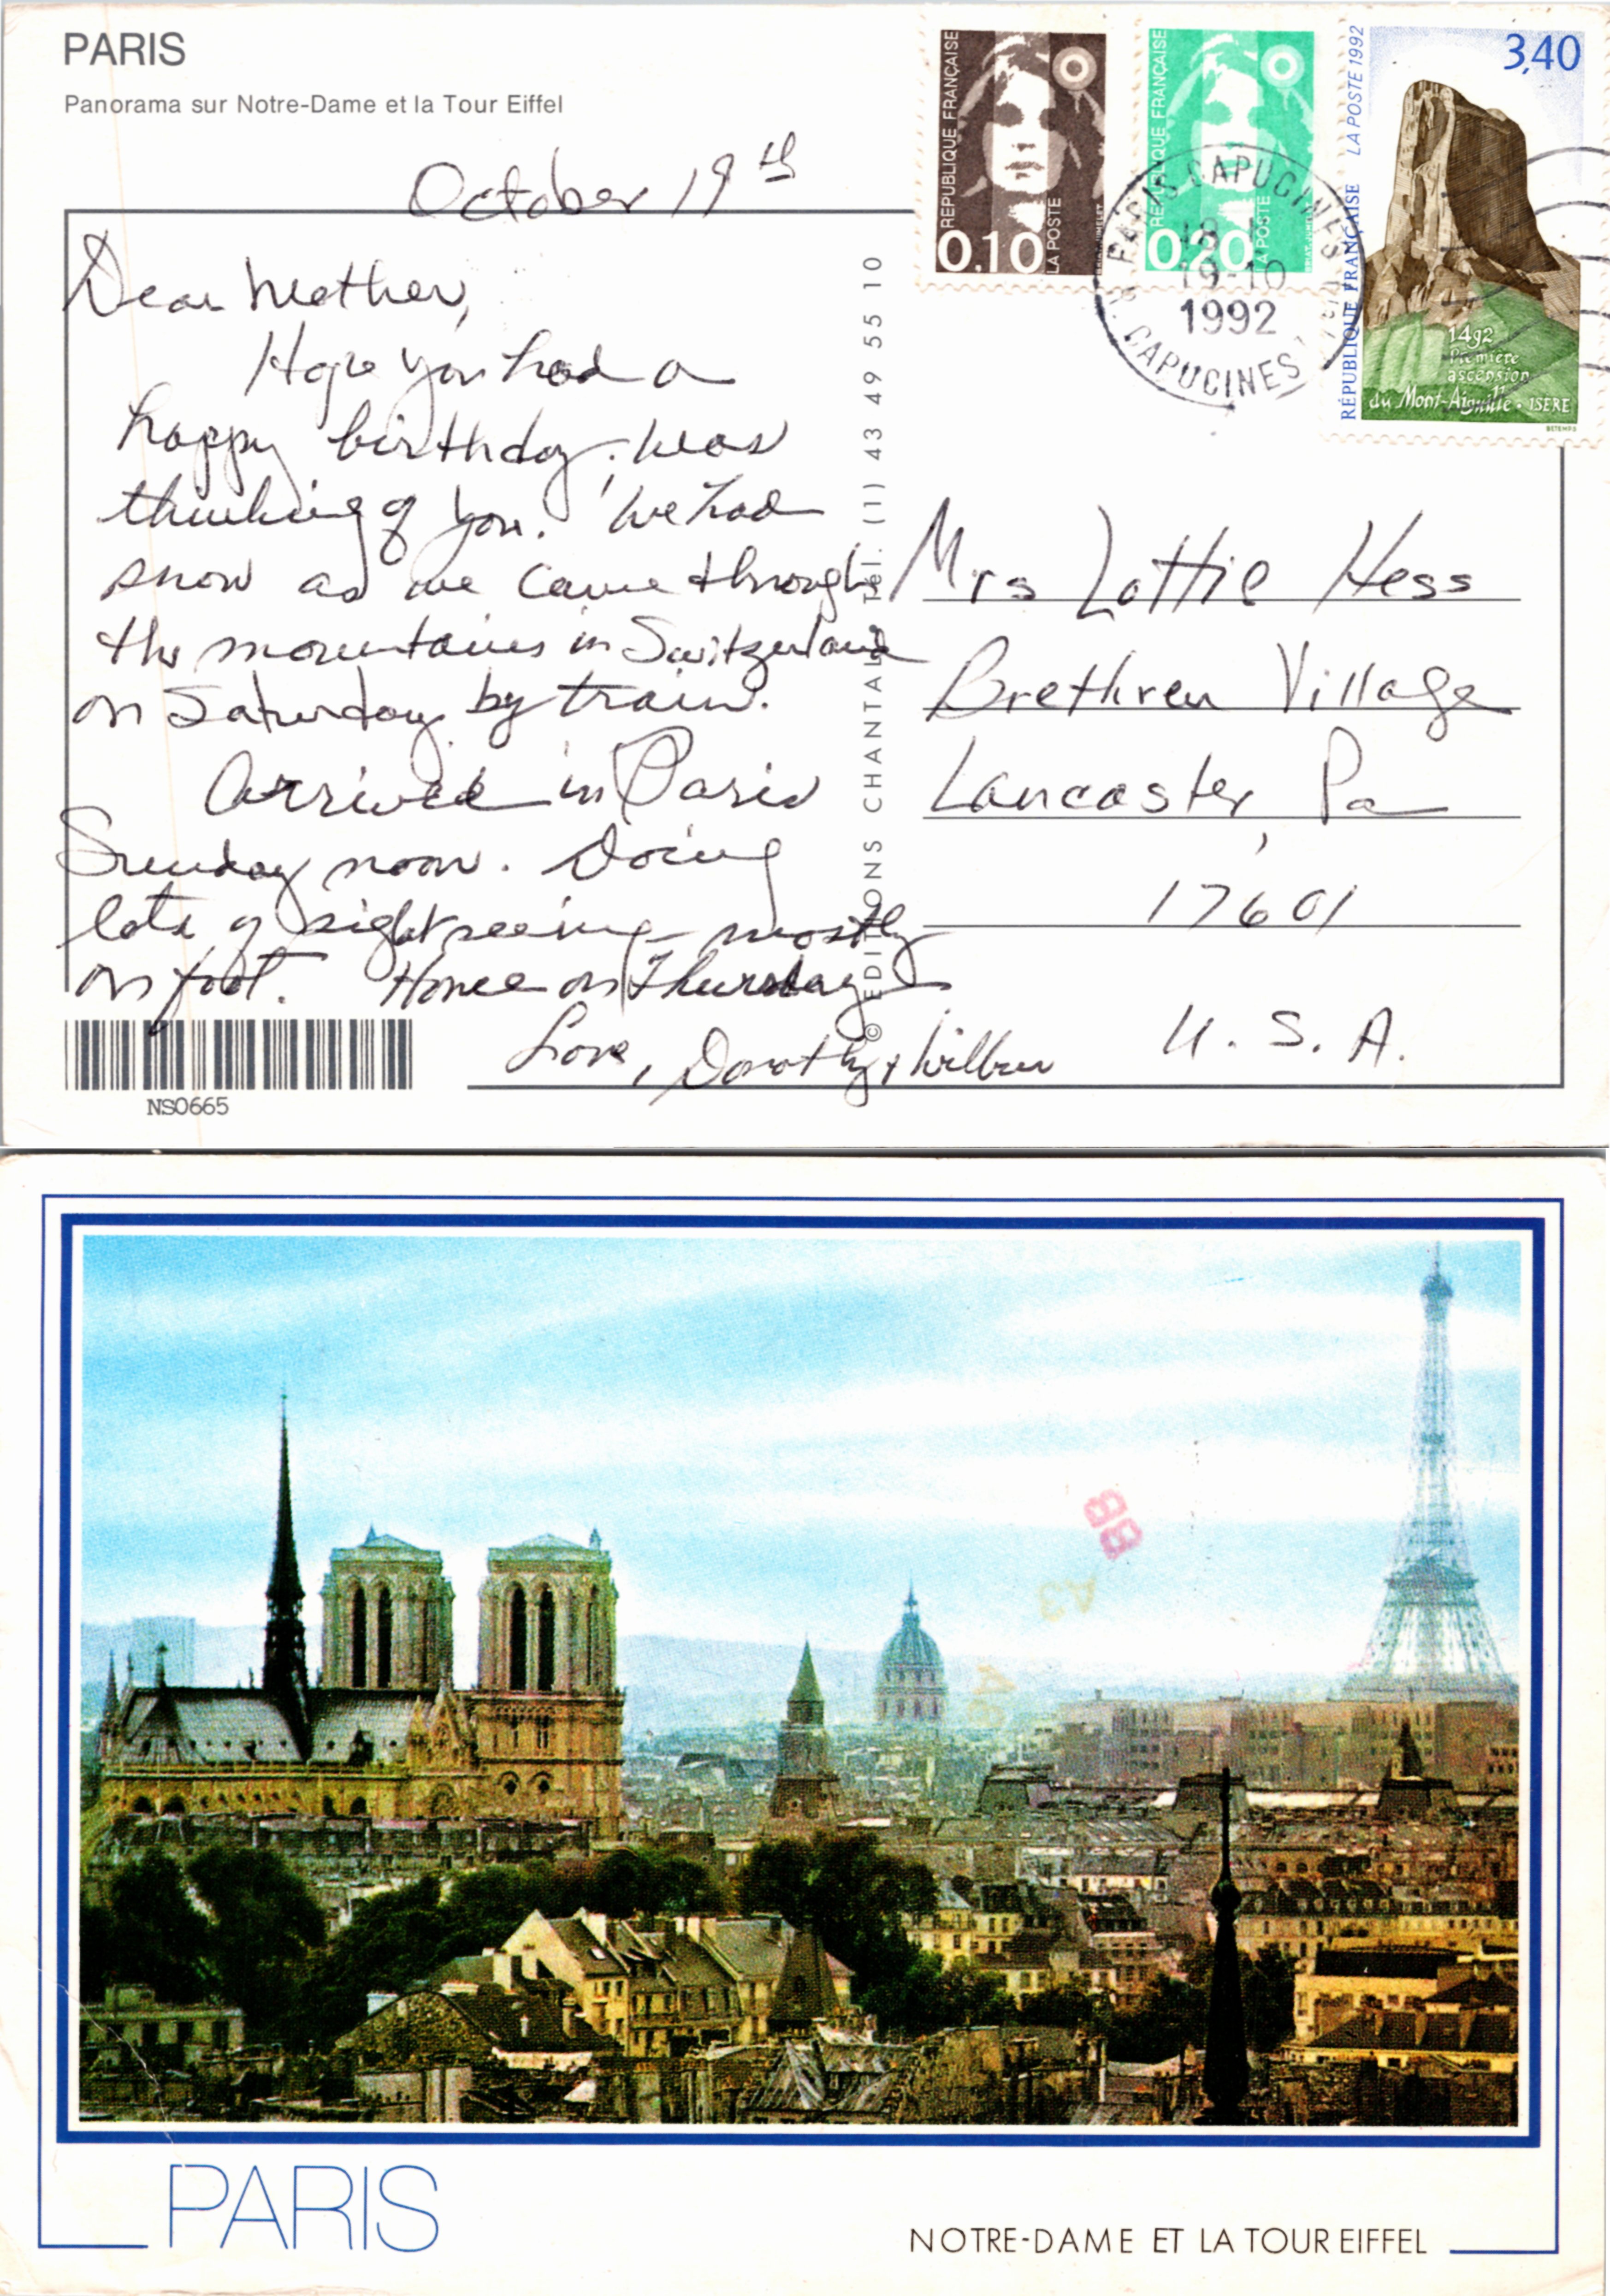 PARIS
Panorama sur Notre-Dame et la Tour Eiffel
October 19th
Dear Mother,
Hope you had a
happy birthday, was
thinking of you. We had
snow as we came through
the mountains in Switzerland
on Saturday by train.
Arrived in Paris
Sunday noon. Doing
lots of sightseeing mostly
on foot. Home on Thursday
Love, Dorothy & Wilbur
NS0665
© EDITIONS CHANTAL • Tél. (1) 43 49 55 10
REPUBLIQUE FRANÇAISE
0.10
LA POSTE
REPUBLIQUE FRANÇAISE
0.20
LA POSTE
RÉPUBLIQUE FRANÇAISE LA POSTE 1992
3,40
1492
Première
ascension
du Mont-Aiguille • ISERE
BETEMPS
PARIS CAPUCINES
19-10
1992
CAPUCINES
Mrs Lottie Hess
Brethren Village
Lancaster, Pa
17601
U. S. A.
88
PARIS
NOTRE-DAME ET LA TOUR EIFFEL